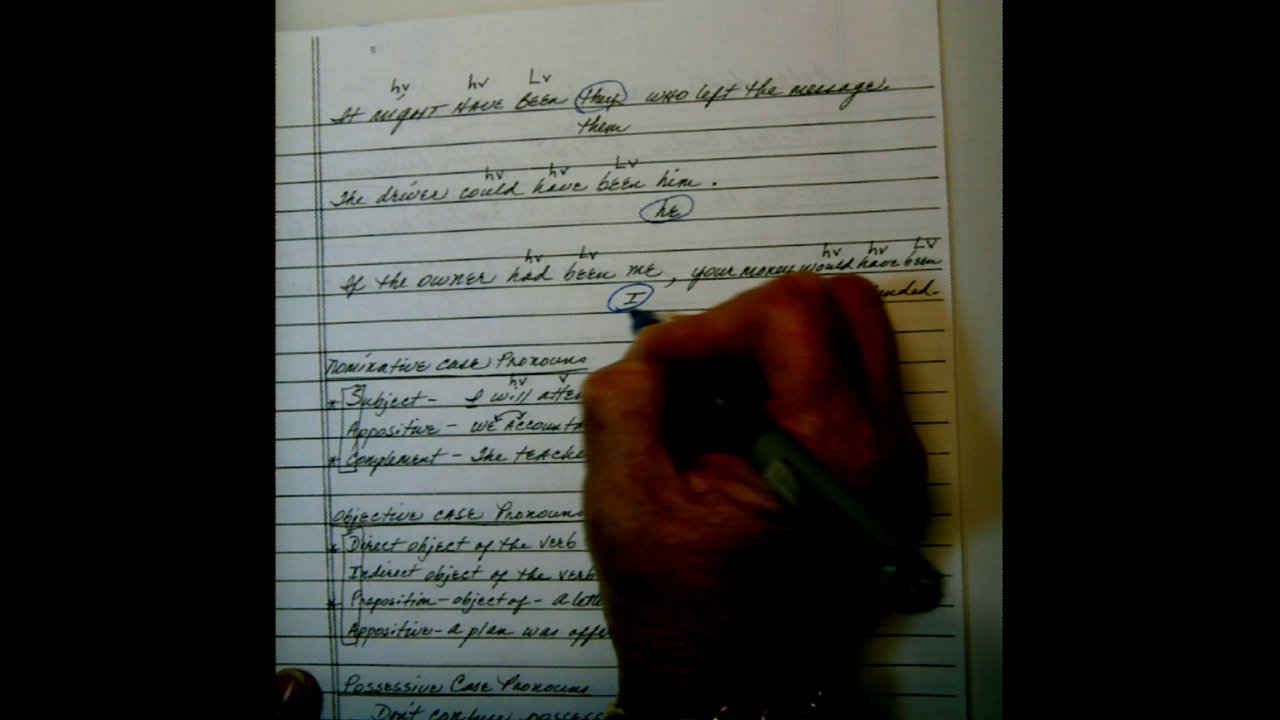 hv hv Lv
It might have been they who left the message.
them
hv hv Lv
The driver could have been him.
he
hv Lv hv hv Lv
If the owner had been me, your money would have been
I
Nominative case Pronouns
hv v
* Subject - I will
Appositive - we
* Complement - The
Objective case Pronouns
* Direct object of the verb
Indirect object of the verb
* Preposition - object of - a
Appositive - a plan was
Possessive Case Pronouns
Don't confuse